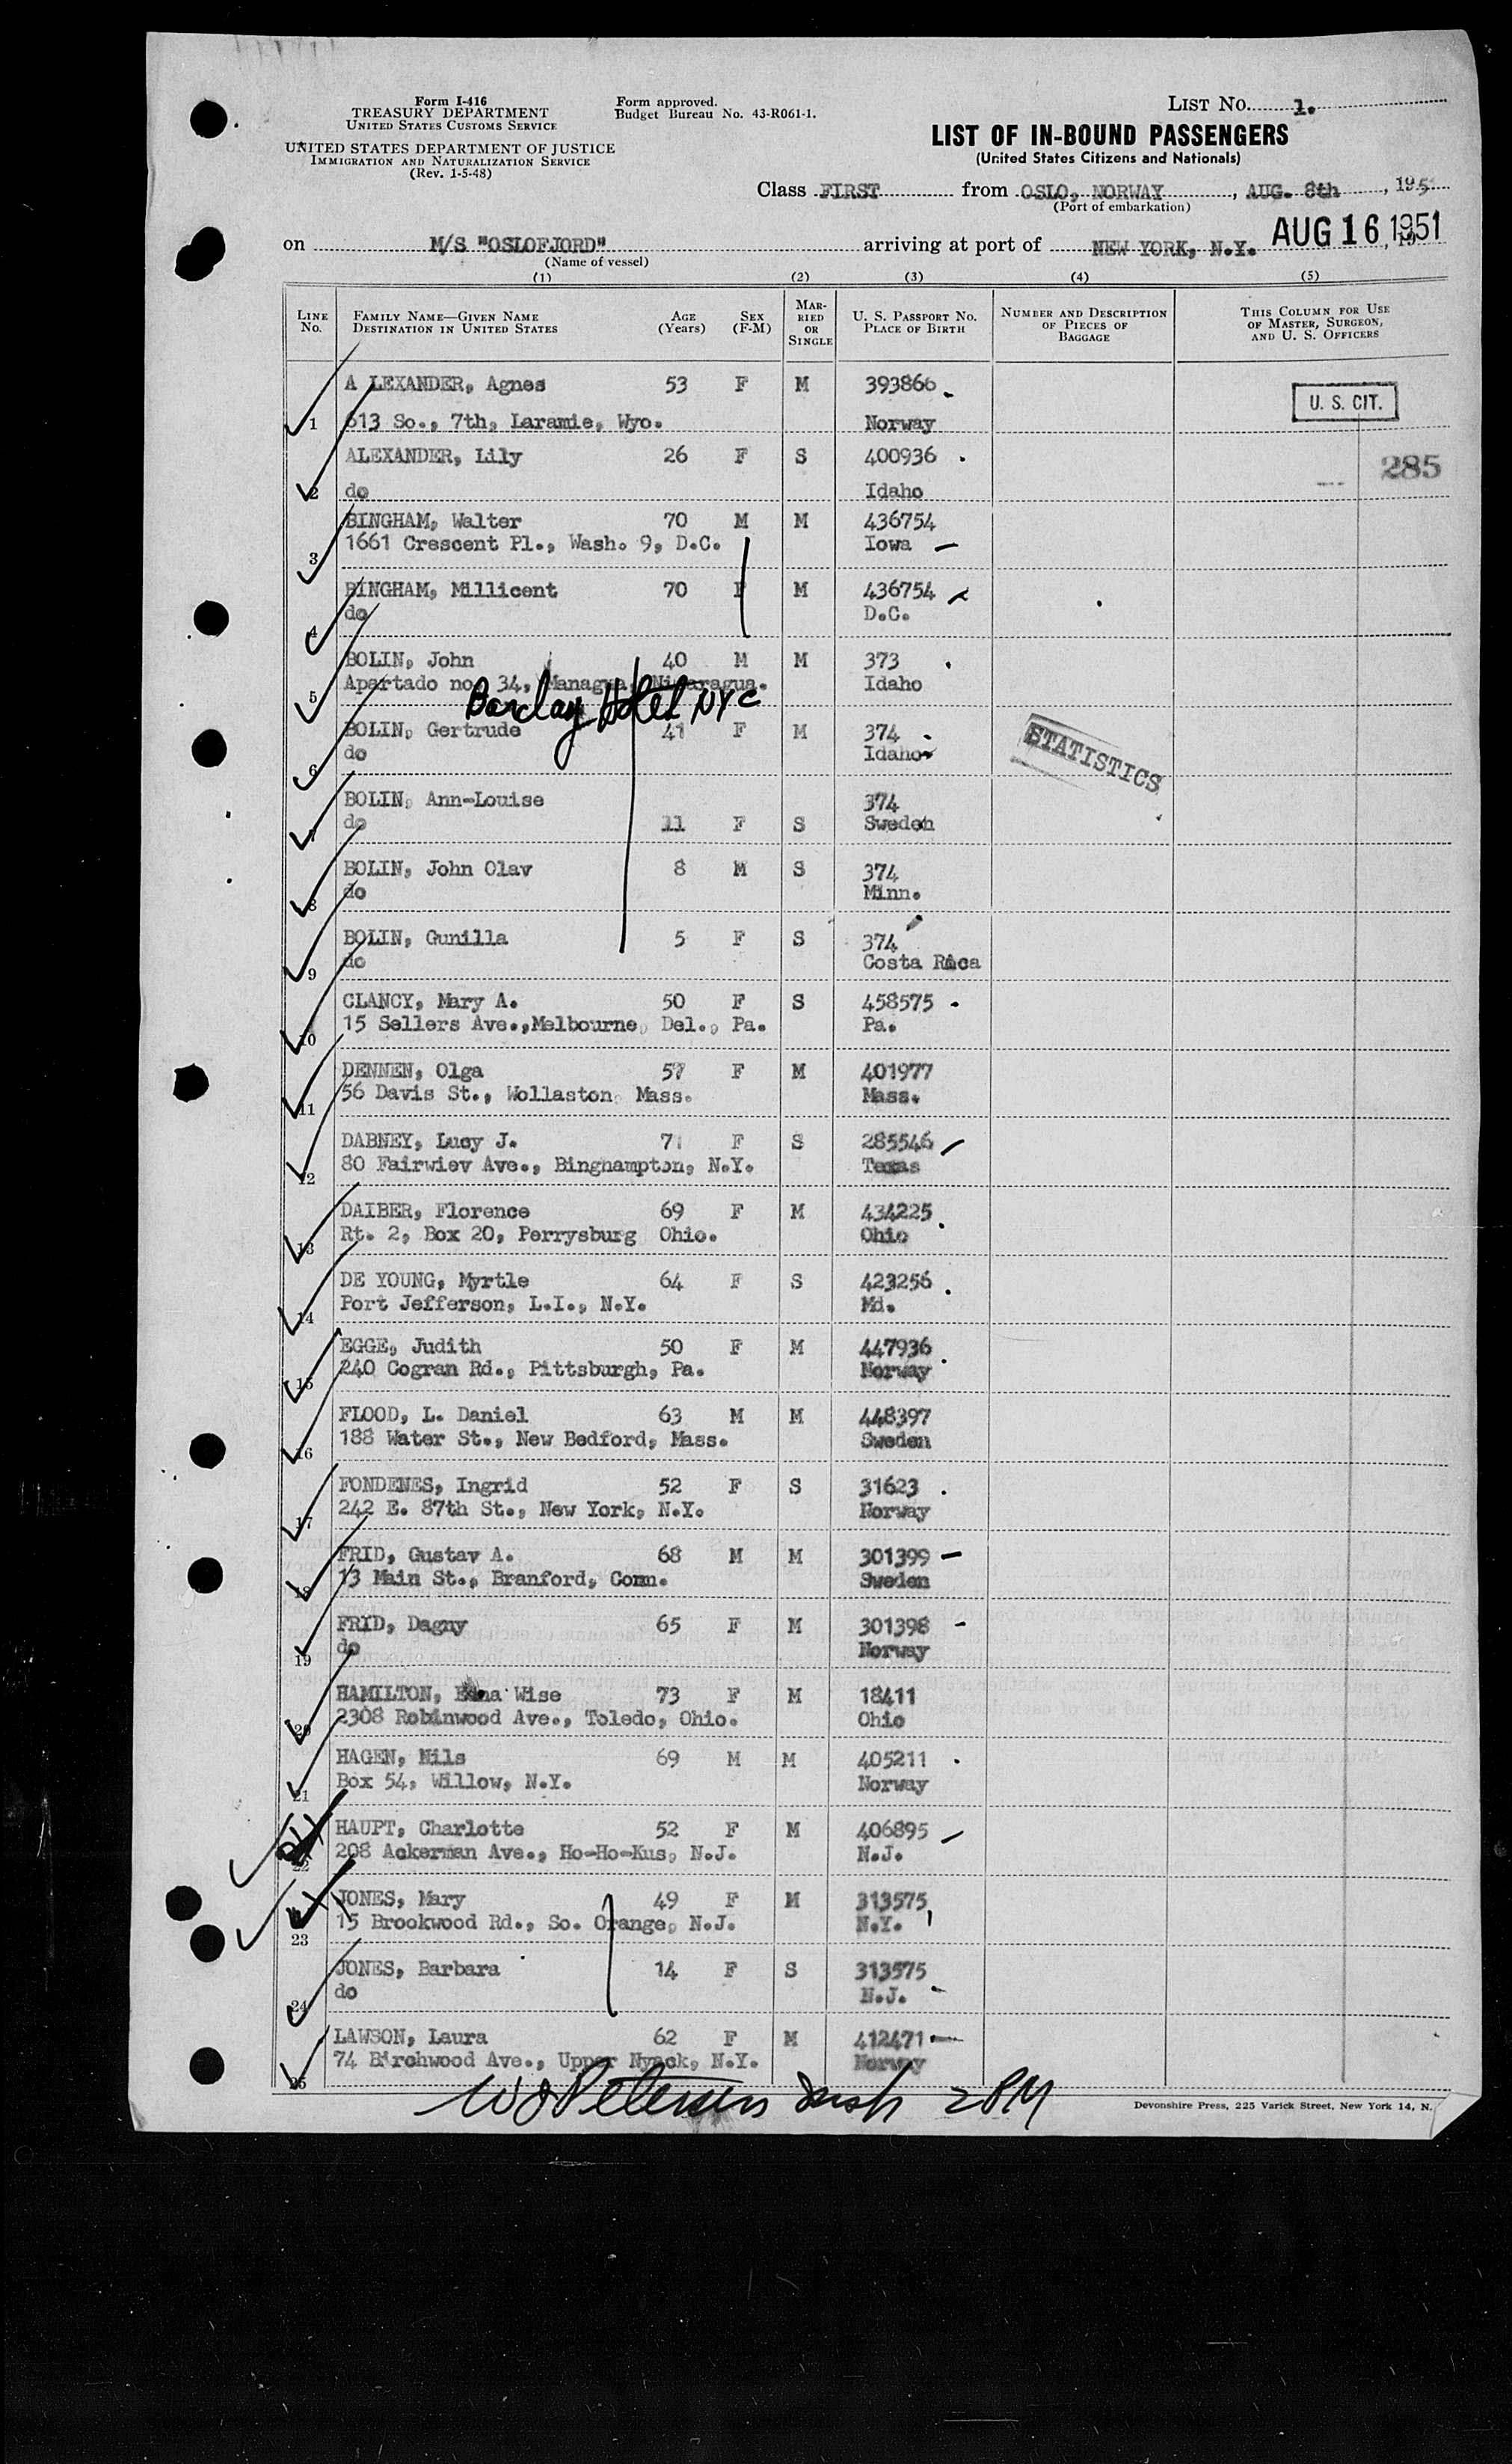 Form I-416
TREASURY DEPARTMENT
UNITED STATES CUSTOMS SERVICE
UNITED STATES DEPARTMENT OF JUSTICE
IMMIGRATION AND NATURALIZATION SERVICE
(Rev. 1-5-48)
Form approved.
Budget Bureau No. 43-R061-1.
LIST No. 1.
LIST OF IN-BOUND PASSENGERS
(United States Citizens and Nationals)
Class FIRST from OSLO, NORWAY, AUG. 8th, 195
(Port of embarkation)
on M/S "OSLOFJORD" arriving at port of NEW YORK, N.Y. AUG 16 1951
(Name of vessel)
(1) (2) (3) (4) (5)
LINE No. FAMILY NAME—GIVEN NAME DESTINATION IN UNITED STATES AGE (Years) SEX (F-M) MARRIED OR SINGLE U. S. PASSPORT NO. PLACE OF BIRTH NUMBER AND DESCRIPTION OF PIECES OF BAGGAGE THIS COLUMN FOR USE OF MASTER, SURGEON, AND U. S. OFFICERS
A LEXANDER, Agnes 53 F M 393866
U. S. CIT.
1 613 So., 7th, Laramie, Wyo. Norway
ALEXANDER, Lily 26 F S 400936 285
2 do Idaho
BINGHAM, Walter 70 M M 436754
3 1661 Crescent Pl., Wash. 9, D.C. Iowa
BINGHAM, Millicent 70 F M 436754
4 do D.C.
BOLIN, John 40 M M 373
5 Apartado no. 34, Managua, Nicaragua. Idaho
Barclay Hotel NYC
BOLIN, Gertrude 41 F M 374
6 do Idaho
STATISTICS
BOLIN, Ann-Louise 374
7 do 11 F S Sweden
BOLIN, John Olav 8 M S 374
8 do Minn.
BOLIN, Gunilla 5 F S 374
9 do Costa Rica
CLANCY, Mary A. 50 F S 458575
10 15 Sellers Ave.,Melbourne, Del., Pa. Pa.
DENNEN, Olga 57 F M 401977
11 56 Davis St., Wollaston, Mass. Mass.
DABNEY, Lucy J. 71 F S 285546
12 80 Fairwiev Ave., Binghampton, N.Y. Texas
DAIBER, Florence 69 F M 434225
13 Rt. 2, Box 20, Perrysburg Ohio. Ohio
DE YOUNG, Myrtle 64 F S 423256
14 Port Jefferson, L.I., N.Y. Md.
EGGE, Judith 50 F M 447936
15 240 Cogran Rd., Pittsburgh, Pa. Norway
FLOOD, L. Daniel 63 M M 448397
16 188 Water St., New Bedford, Mass. Sweden
FONDENES, Ingrid 52 F S 31623
17 242 E. 87th St., New York, N.Y. Norway
FRID, Gustav A. 68 M M 301399
18 13 Main St., Branford, Conn. Sweden
FRID, Dagny 65 F M 301398
19 do Norway
HAMILTON, Edna Wise 73 F M 18411
20 2308 Robinwood Ave., Toledo, Ohio. Ohio
HAGEN, Nils 69 M M 405211
21 Box 54, Willow, N.Y. Norway
HAUPT, Charlotte 52 F M 406895
22 208 Ackerman Ave., Ho-Ho-Kus, N.J. N.J.
JONES, Mary 49 F M 313575
23 15 Brookwood Rd., So. Orange, N.J. N.Y.
JONES, Barbara 14 F S 313575
24 do N.J.
LAWSON, Laura 62 F M 412471
25 74 Birchwood Ave., Upper Nyack, N.Y. Norway
Petersen 2PM
Devonshire Press, 225 Varick Street, New York 14, N.